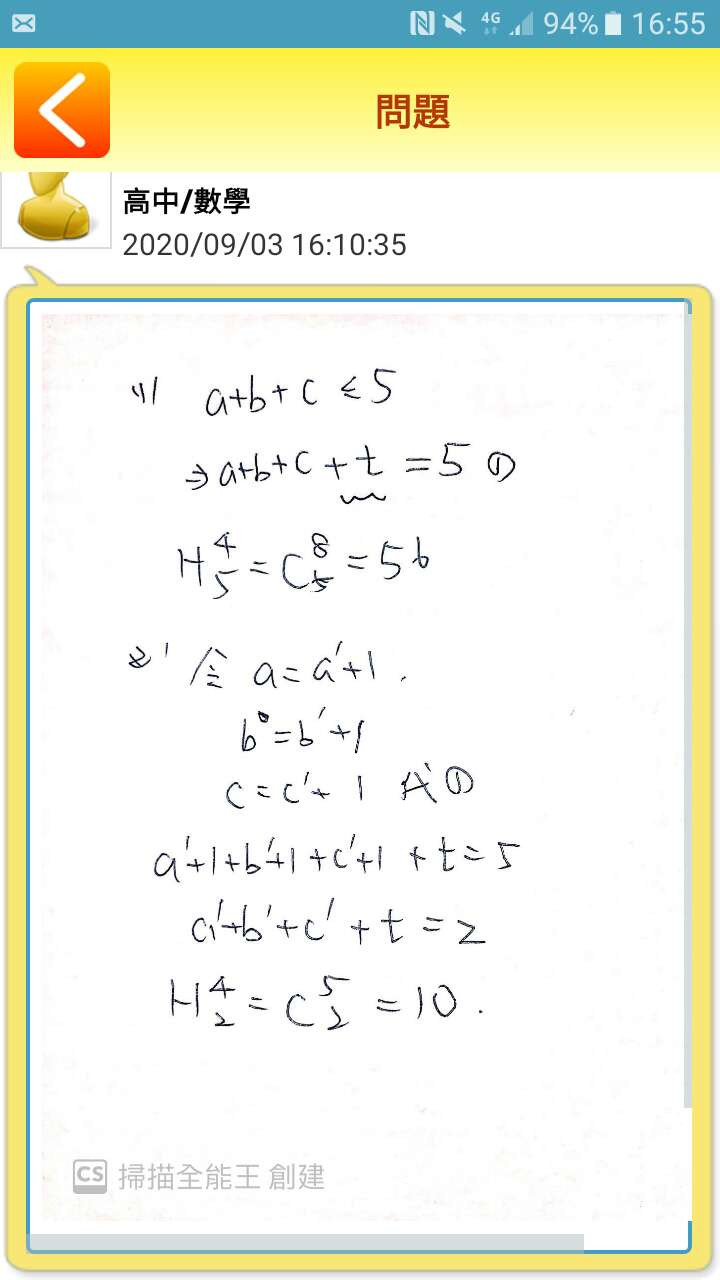 4G 94% 16:55
問題
高中/數學
2020/09/03 16:10:35
(1) a+b+c ≤ 5
⇒ a+b+c+t = 5 ①
H⁴₅ = C⁸₅ = 56
(2) 令 a = a'+1 .
b = b'+1
c = c'+1 代①
a'+1+b'+1+c'+1+t = 5
a'+b'+c'+t = 2
H⁴₂ = C⁵₂ = 10 .
CS 掃描全能王 創建